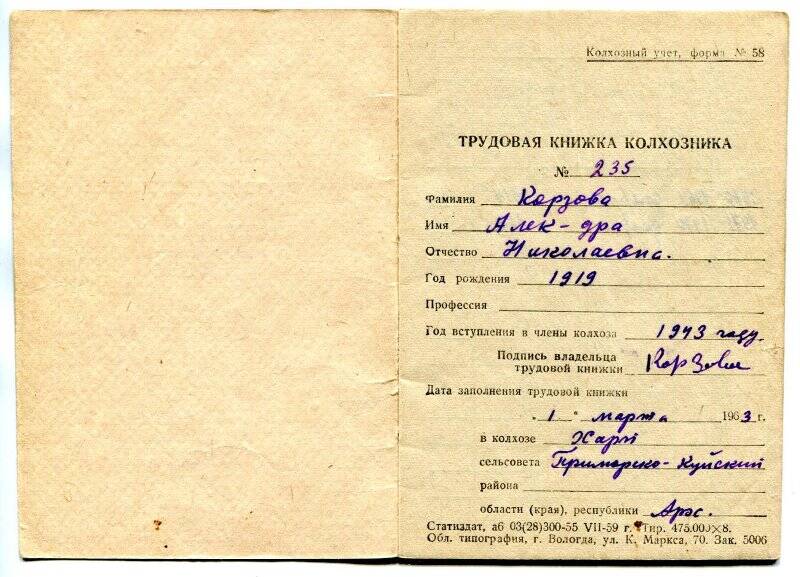 Колхозный учет, форма № 58
ТРУДОВАЯ КНИЖКА КОЛХОЗНИКА
№ 235
Фамилия Корзова
Имя Алек-дра
Отчество Николаевна.
Год рождения 1919
Профессия
Год вступления в члены колхоза 1943 году.
Подпись владельца
трудовой книжки Корзова
Дата заполнения трудовой книжки
"1" марта 1963 г.
в колхозе Харп
сельсовета Приморско-Куйский
района
области (края), республики Арх.
Статиздат, аб 03(28)300-55 VII-59 г. Тир. 475.000×8.
Обл. типография, г. Вологда, ул. К. Маркса, 70. Зак. 5006